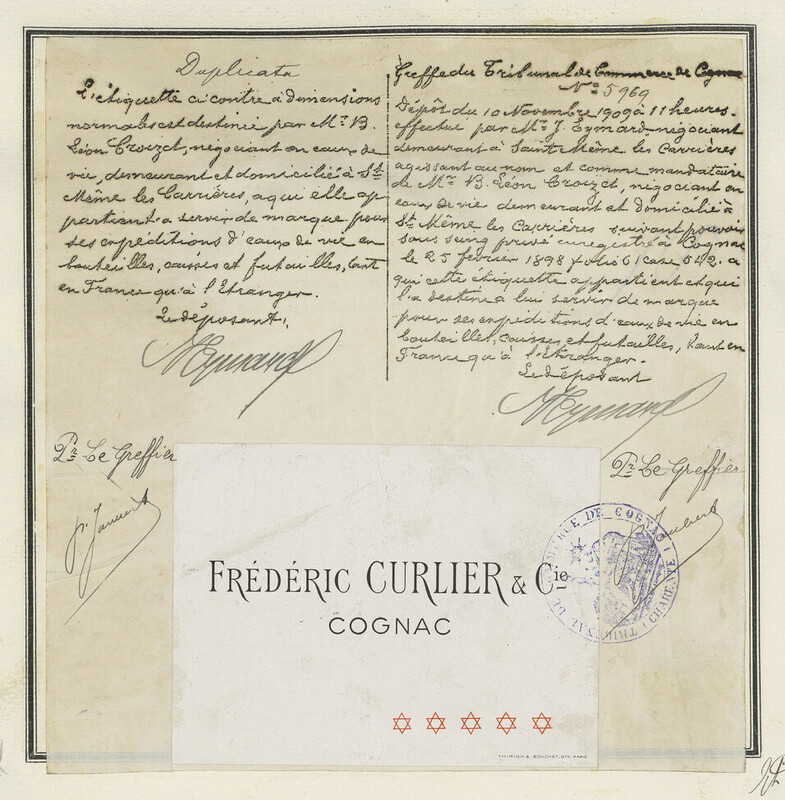 Duplicata
L'étiquette ci contre à dimensions
normales est destinée par Mr. B.
Léon Croizet, négociant en eaux de
vie, demeurant et domicilié à St.
Même les Carrières, a qui elle ap
partient a servir de marque pour
ses expéditions d'eaux de vie en
bouteilles, caisses et futailles, tant
en France qu'à l'Etranger.
Le déposant,
Pr. Le Greffier
Greffe du Tribunal de Commerce de Cognac
No 5969
Dépôt du 10 Novembre 1909 à 11 heures.
effectué par Mr. J. Eymard négociant
demeurant à Sainte Même les Carrières
agissant au nom et comme mandataire
de Mr. B. Léon Croizet, négociant en
eaux de vie demeurant et domicilié à
St. Même les Carrières suivant pouvoir
sous seing privé enregistré à Cognac
le 25 février 1898 folio 61 case 542. a
qui cette étiquette appartient et qui
l'a destine a lui servir de marque
pour ses expéditions d'eaux de vie en
bouteilles, caisses et futailles, tant en
France qu'à l'Etranger.
Le déposant
Pr. Le Greffier
FRÉDÉRIC CURLIER & Cie
COGNAC
THIRION & BOUCHET, GR. PARIS
TRIBUNAL DE COMMERCE DE COGNAC